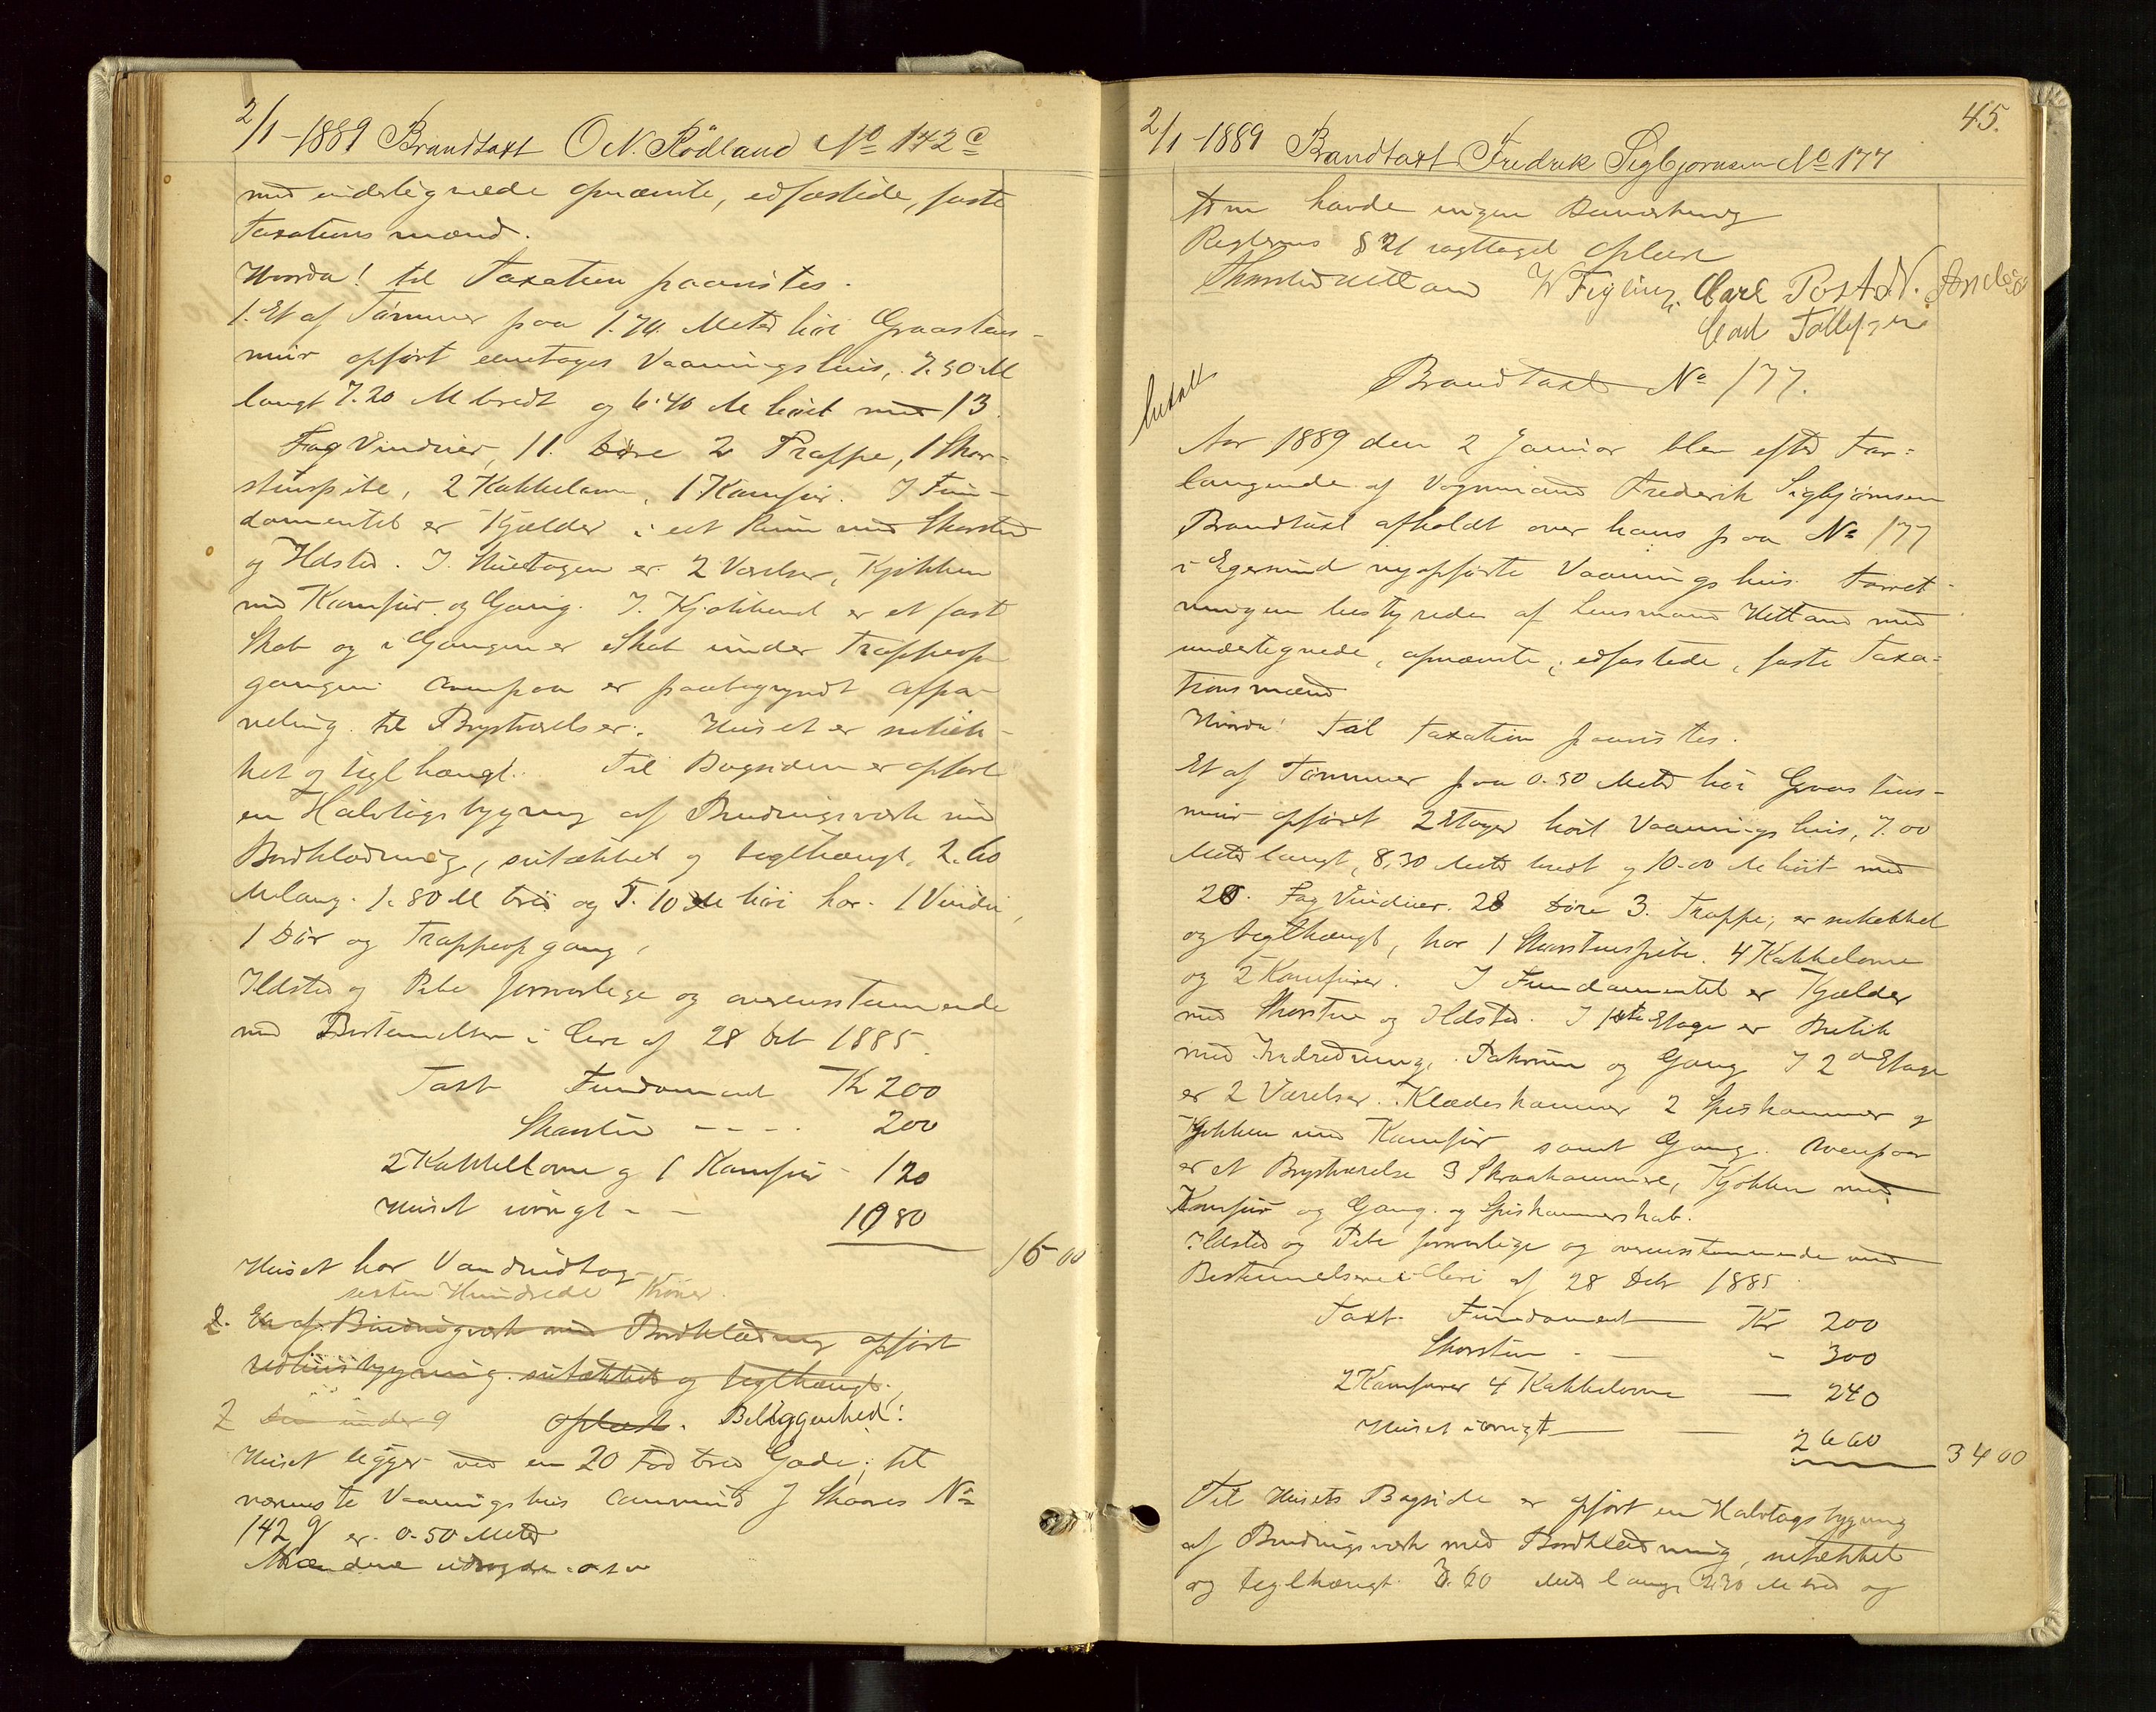 2/1-1889 Brandtaxt O N. Rödland No 142 c
med undertegnede opnævnte, edfæstede, faste
Taxationsmænd.
Hvorda! til Taxation paavistes.
1. Et af Tømmer paa 1.70 Meter høi Graastens-
mur opført eenetages Vaaningshuus, 7.50 M
langt 7.20 M bredt og 6.40 M høit med 13
Fag Vinduer, 11 Døre 2 Trappe, 1 Skor-
stenspibe, 2 Kakkelovne, 1 Komfur. I Fun-
damentet er Kjælder i eet Rum med Skorsten
og Ildsted. I Stueetagen er 2 Værelser, Kjøkken
med Komfur og Gang. I Kjøkkenet er et fast
Skab og i Gangen er Skab under Trappeop
gangen. Ovenpaa er paabegyndt afpa-
neling til Brystværelser. Huset er sutæk-
ket og tegl hængt. Til Bagsiden er opført
en Halvtags bygning af Bindingsværk med
Bordklædning, sutækket og teglhængt, 2.60
M lang. 1.80 M bred og 5.10 M høi har 1 Vindu,
1 Dør og Trappeopgang,
Ildsted og Pibe forsvarlige og overensstemmende
med Bestemmelsen i Circ af 28 Oct 1885.
Taxt Fundament Kr 200
Skorsten - - - - 200
2 Kakkellovne og 1 Komfur - 120
Huset iøvrigt - - 1080
1600
Huset har Vandindtag
sexten Hundrede Kroner.
2. En af Bindingværk med Bordklædning opført
Udhuusbygning sutækket og teglhængt.
2 Den under 9 oplæst. Beliggenhed:
Huset ligger ved en 20 Fod bred Gade; til
nærmeste Vaaningshus J Skaares No
142 g er 0.50 Meter
Mændene udsagde o s v
2/1-1889 Brandtaxt Fredrik Sigbjørnsen No 177
45.
havde ingen Bemærkning
Reglerne § 21 iagttaget Oplæst
Thorsted Hetland W Feyling. Carl Post N.
Carl Tollefsen
Brandtaxt No 177.
Aar 1889 den 2 Januar blev efter For-
langende af Vognmand Frederik Sigbjørnsen
Brandtaxt afholdt over hans paa No 177
i Egersund nyopførte Vaaningshus. Forret-
ningen bestyredes af Lensmand Hetland med
undertegnede, opnævnte, edfæstede, faste Taxa-
tionsmænd
Hvorda! Til Taxation paavistes.
Et af Tømmer paa 0.50 Meter høi Graastens-
mur opført 2 Etager høit Vaaningshus, 7.00
Meter langt, 8,30 Meter bredt og 10.00 M høit med
20. Fag Vinduer. 28 Døre 3. Trappe, er sutækket
og teglhængt, har 1 Skorstenspibe. 4 Kakkelovne
og 2 Komfurer. I Fundamentet er Kjælder
med Skorsten og Ildsted. I 1ste Etage er Butik
med Indredning, Pakrum og Gang I 2den Etage
er 2 Værelser. Klædeskammer 2 Spiskammer og
Kjøkken med Komfur samt Gang. Ovenpaa
er et Brystværelse 3 Skraakammere, Kjøkken med
Komfur og Gang. og Spiskammerskab.
Ildsted og Pibe forsvarlige og overensstemmende med
Bestemmelserne i Circ af 28 Octr 1885.
Taxt. Fundament Kr 200
Skorsten - - 300
2 Komfurer 4 Kakkelovne - 240
Huset iøvrigt - 2660
3400
Til Husets Bagside er opført en Halvtagsbygning
af Bindingsværk med Bordklædning, sutækket
og teglhængt 3.60 Meter lang 2.30 M bred og